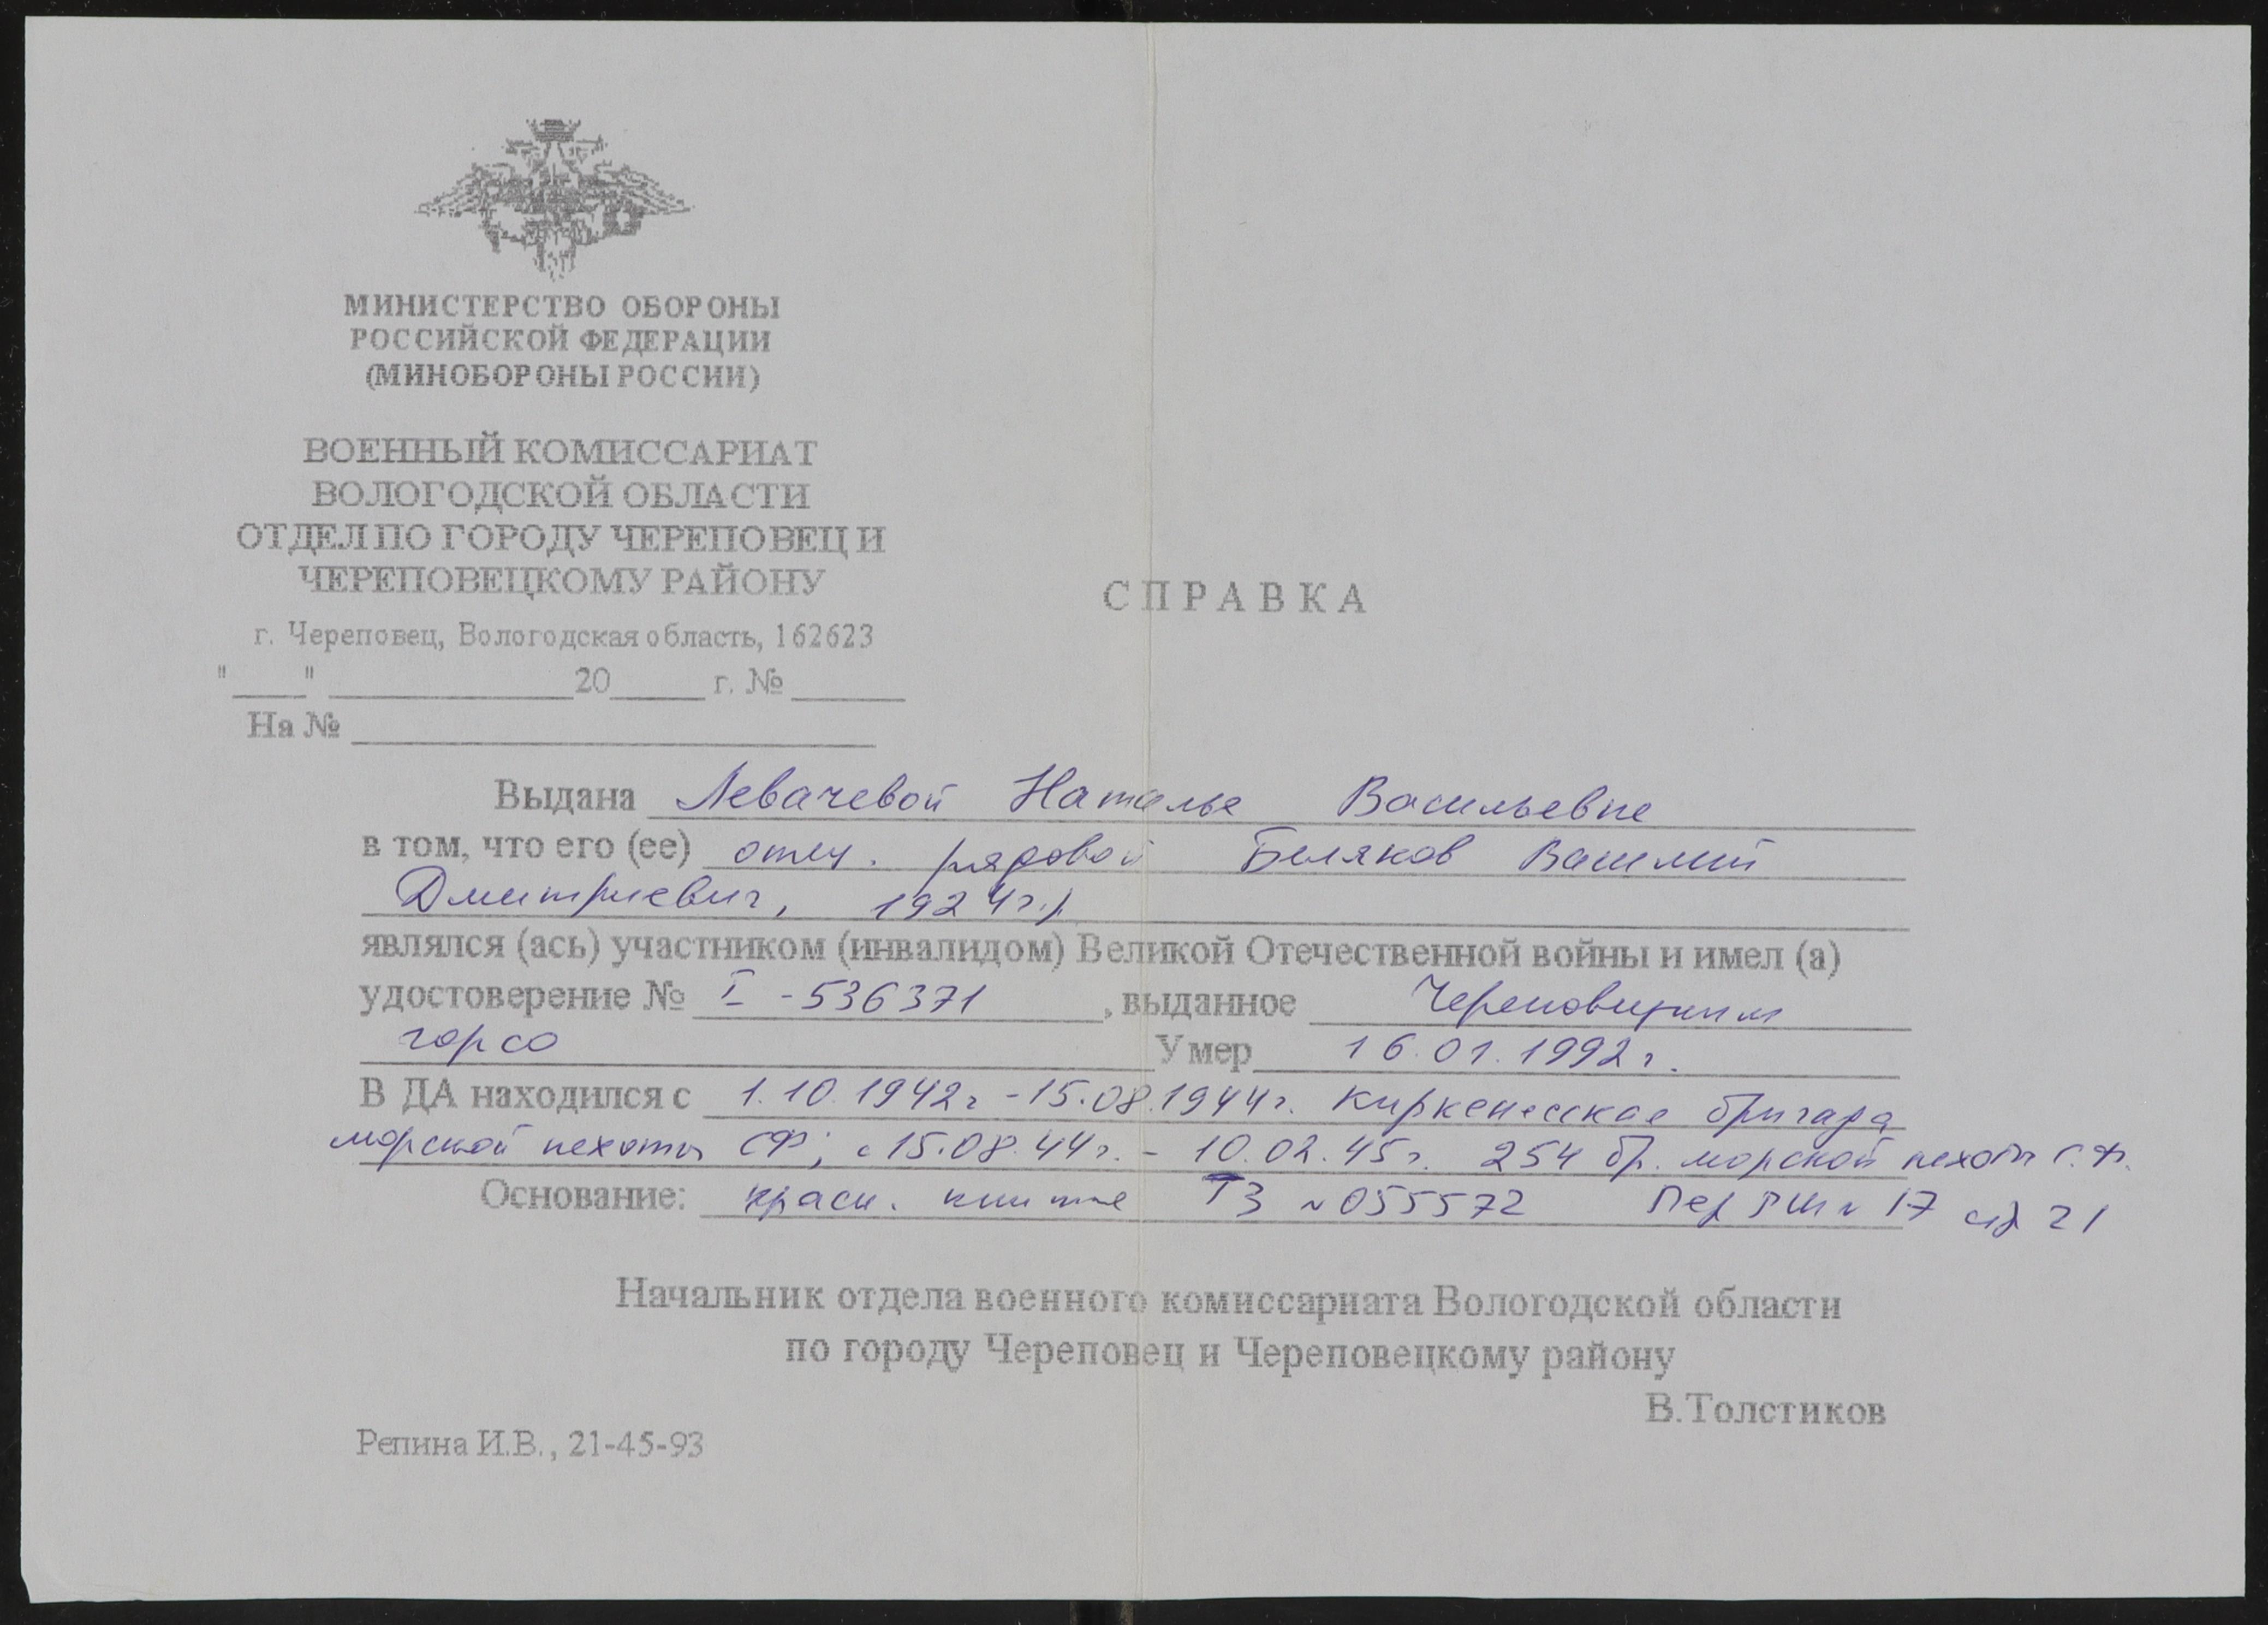 МИНИСТЕРСТВО ОБОРОНЫ
РОССИЙСКОЙ ФЕДЕРАЦИИ
(МИНОБОРОНЫ РОССИИ)
ВОЕННЫЙ КОМИССАРИАТ
ВОЛОГОДСКОЙ ОБЛАСТИ
ОТДЕЛ ПО ГОРОДУ ЧЕРЕПОВЕЦ И
ЧЕРЕПОВЕЦКОМУ РАЙОНУ
г. Череповец, Вологодская область, 162623
"____" ____________20_____ г. № ______
На № ____________
СПРАВКА
Выдана Левачевой Наталье Васильевне
в том, что его (ее) отец. рядовой Беляков Василий
Дмитриевич, 1924г.р
являлся (ась) участником (инвалидом) Великой Отечественной войны и имел (а)
удостоверение № I -536371 , выданное Череповецким
горсо Умер 16.01.1992г.
В ДА находился с 1.10.1942г -15.08.1944г. Киркенесская бригада
морской пехоты СФ; с 15.08.44г. - 10.02.45г. 254 бр. морской пехоты С.Ф.
Основание: красн. книжке ТЗ №055572 17 стр 21
Начальник отдела военного комиссариата Вологодской области
по городу Череповец и Череповецкому району
В.Толстиков
Репина И.В., 21-45-93